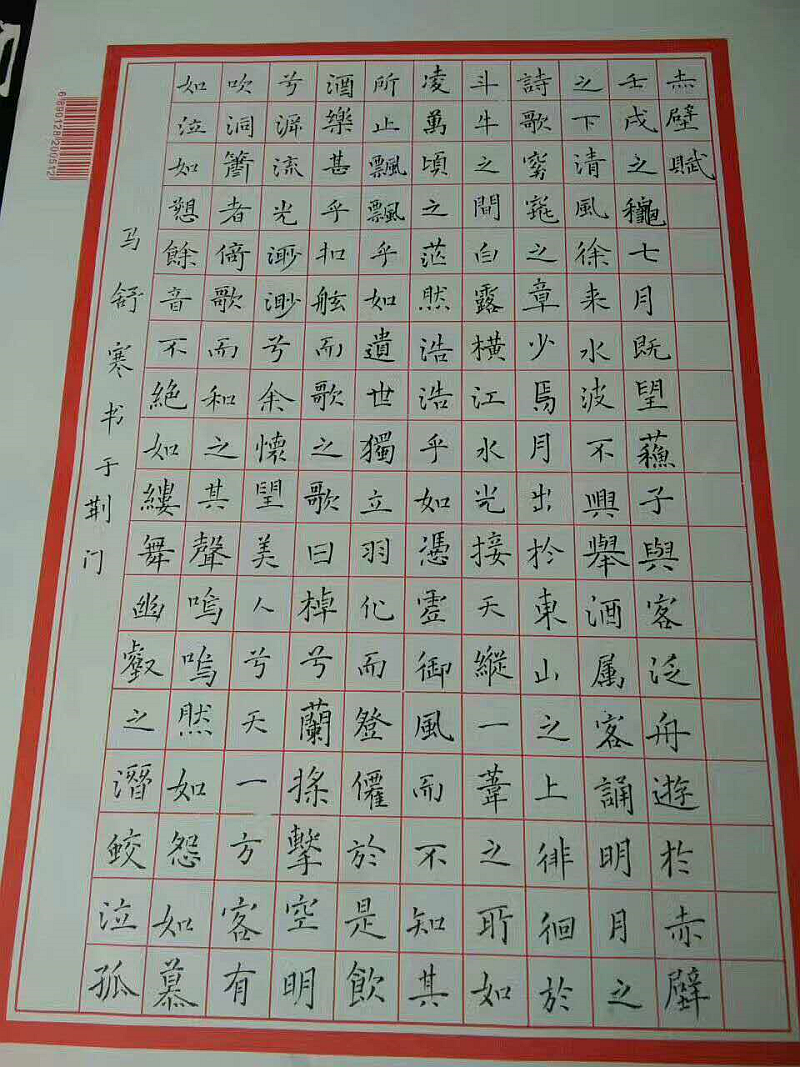 赤壁賦
壬戌之龝七月既望蘓子與客泛舟遊於赤壁
之下清風徐来水波不興舉酒属客誦明月之
詩歌窈窕之章少焉月出於東山之上徘徊於
斗牛之間白露橫江水光接天縱一葦之所如
凌萬頃之茫然浩浩乎如憑虛御風而不知其
所止飄飄乎如遺世獨立羽化而登僊於是飲
酒樂甚乎扣舷而歌之歌曰棹兮蘭搖擊空明
兮泝流光渺渺兮余懷望美人兮天一方客有
吹洞簫者倚歌而和之其聲嗚嗚然如怨如慕
如泣如愬餘音不絶如縷舞幽叡之潛蛟泣孤
马舒寒书于荆门